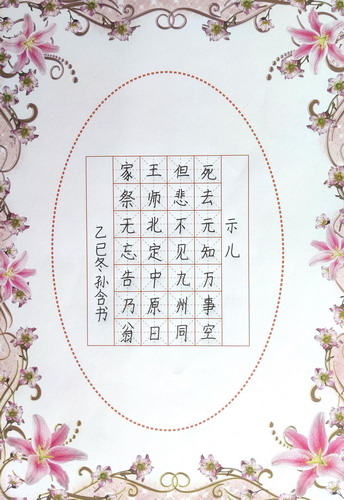 示儿
死去元知万事空
但悲不见九州同
王师北定中原日
家祭无忘告乃翁
乙巳冬孙含书